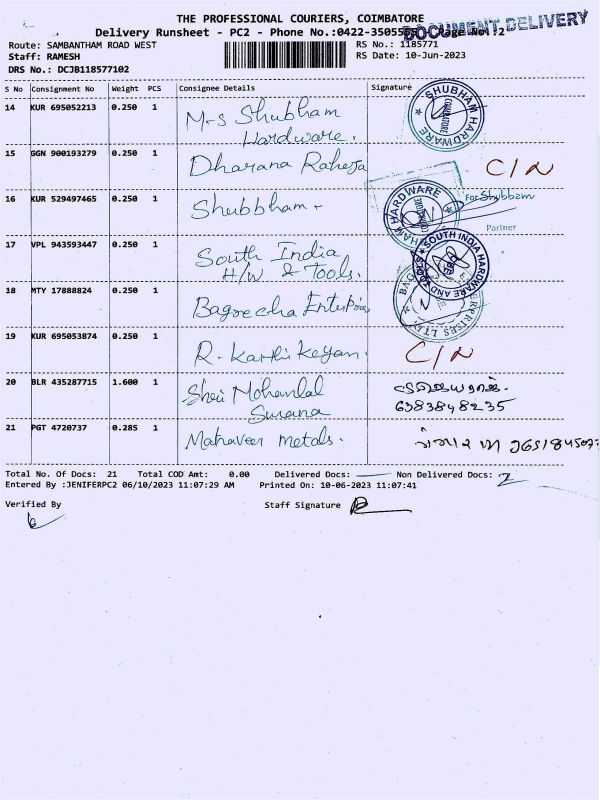 THE PROFESSIONAL COURIERS, COIMBATORE
DOCUMENT DELIVERY
Delivery Runsheet - PC2 - Phone No.:0422-3505505 Page No.:2
Route: SAMBANTHAM ROAD WEST
RS No.: 1185771
Staff: RAMESH
RS Date: 10-Jun-2023
DRS No.: DCJB118577102
S No Consignment No Weight PCS Consignee Details Signature
14 KUR 695052213 0.250 1 M-s Shubham
Hardware.
SHUBHAM HARDWARE
COIMBATORE
15 GGN 900193279 0.250 1 Dharana Raheja C/N
16 KUR 529497465 0.250 1 Shubbham
HARDWARE
For Shubham
Partner
17 VPL 943593447 0.250 1 South India
H/W & Tools.
SOUTH INDIA HARDWARE AND TOOLS
18 MTY 17888824 0.250 1 Bagrecha Enterprises
19 KUR 695053874 0.250 1 R. Karthikeyan. C/N
20 BLR 435287715 1.600 1 Shri Mohanlal
Surana
6383848235
21 PGT 4720737 0.285 1 Mahaveer metals.
Total No. Of Docs: 21 Total COD Amt: 0.00 Delivered Docs: Non Delivered Docs: 2
Entered By :JENIFERPC2 06/10/2023 11:07:29 AM Printed On: 10-06-2023 11:07:41
Verified By Staff Signature